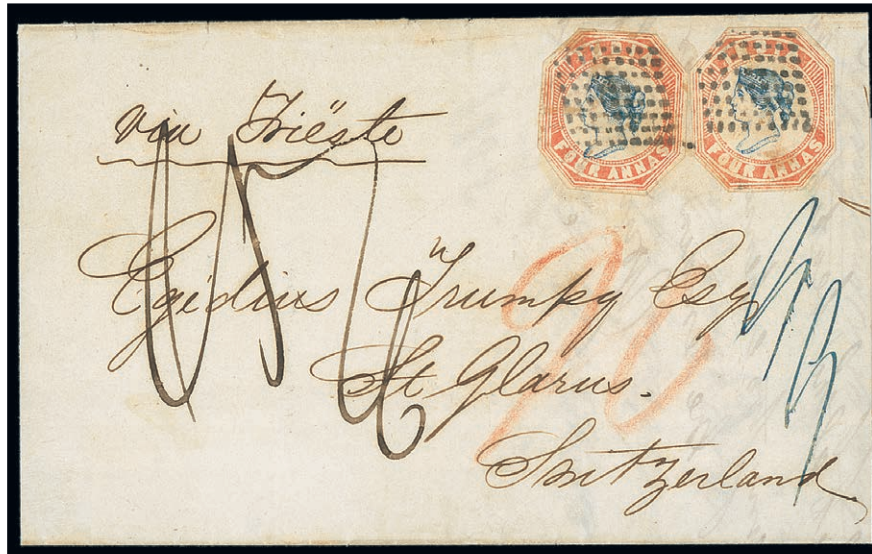 FOUR ANNAS
FOUR ANNAS
via Triëste
Egidius Trümpy Esq
St Glarus.
Switzerland